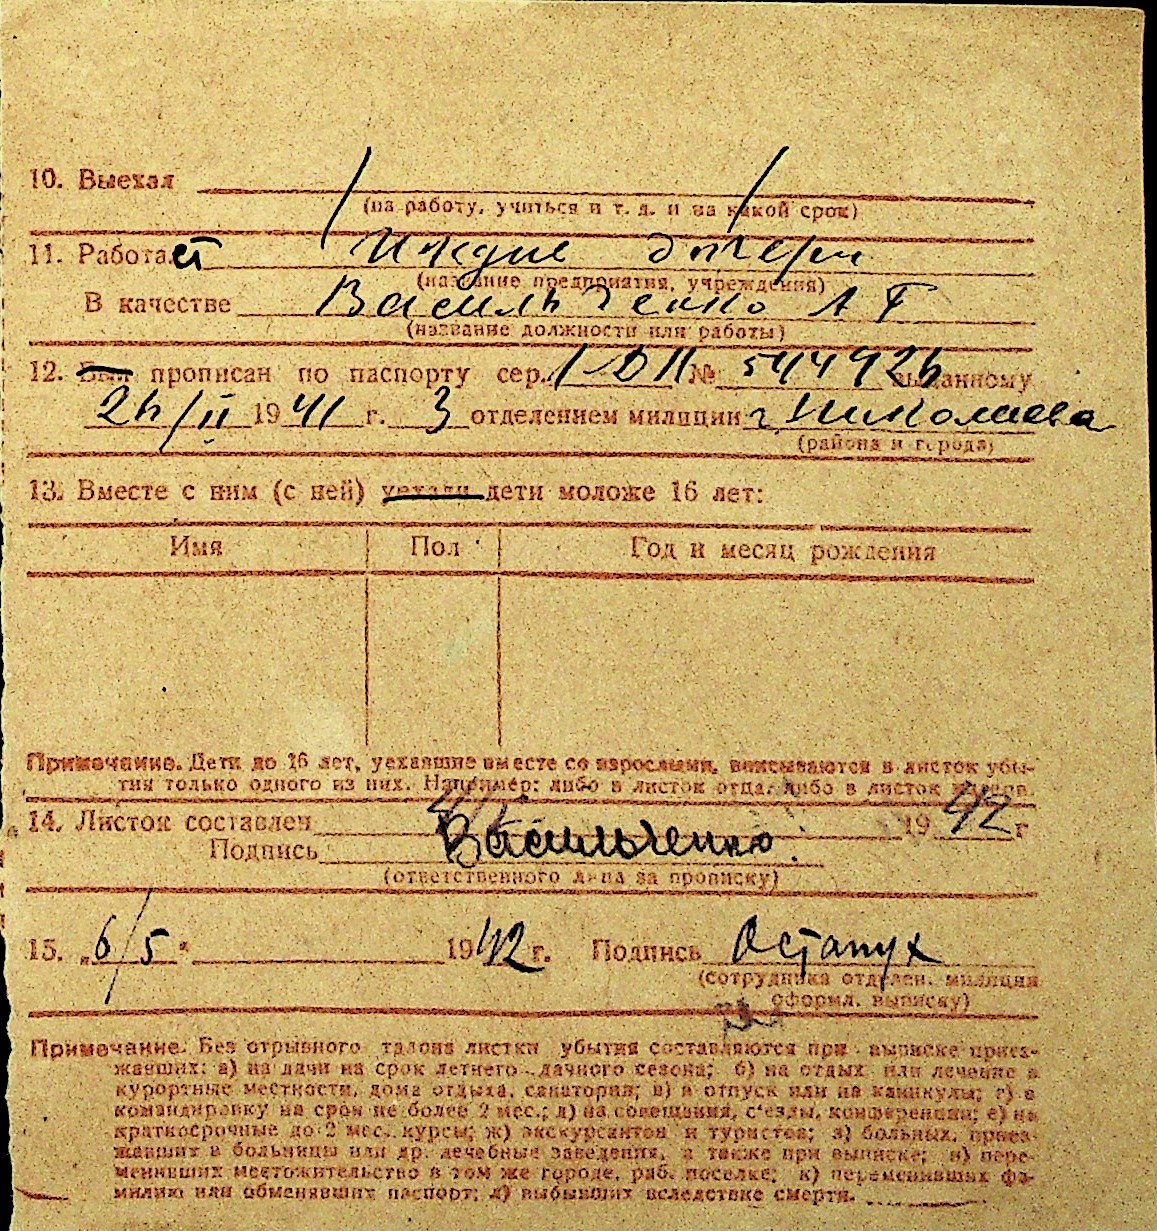 10. Выехал
(на работу, учиться и т. д. и на какой срок)
11. Работает Иждив дочери
(название предприятия, учреждения)
В качестве Васильченко А Г
(название должности или работы)
12. Был прописан по паспорту сер. I-ДН № 544926 выданному
26/II 1941 г. 3 отделением милиции г. Николаева
(района и города)
13. Вместе с ним (с ней) уехали дети моложе 16 лет:
Имя Пол Год и месяц рождения
Примечание. Дети до 16 лет, уехавшие вместе со взрослыми, вписываются в листок убы-
тия только одного из них. Например: либо в листок отца, либо в листок матери.
14. Листок составлен 1942 г
Подпись Васильченко
(ответственного лица за прописку)
15. „6/5" 1942 г. Подпись Остапух
(сотрудника отделен. милиции
оформл. выписку)
Примечание. Без отрывного талона листки убытия составляются при выписке приез-
жавших: а) на дачи на срок летнего дачного сезона; б) на отдых или лечение в
курортные местности, дома отдыха, санатории; в) в отпуск или на каникулы; г) в
командировку на срок не более 2 мес.; д) на совещания, с'езды, конференции; е) на
краткосрочные до 2 мес. курсы; ж) экскурсантов и туристов; з) больных, приез-
жавших в больницы или др. лечебные заведения, а также при выписке; и) пере-
менивших местожительство в том же городе, раб. поселке; к) переменивших фа-
милию или обменявших паспорт; л) выбывших вследствие смерти.